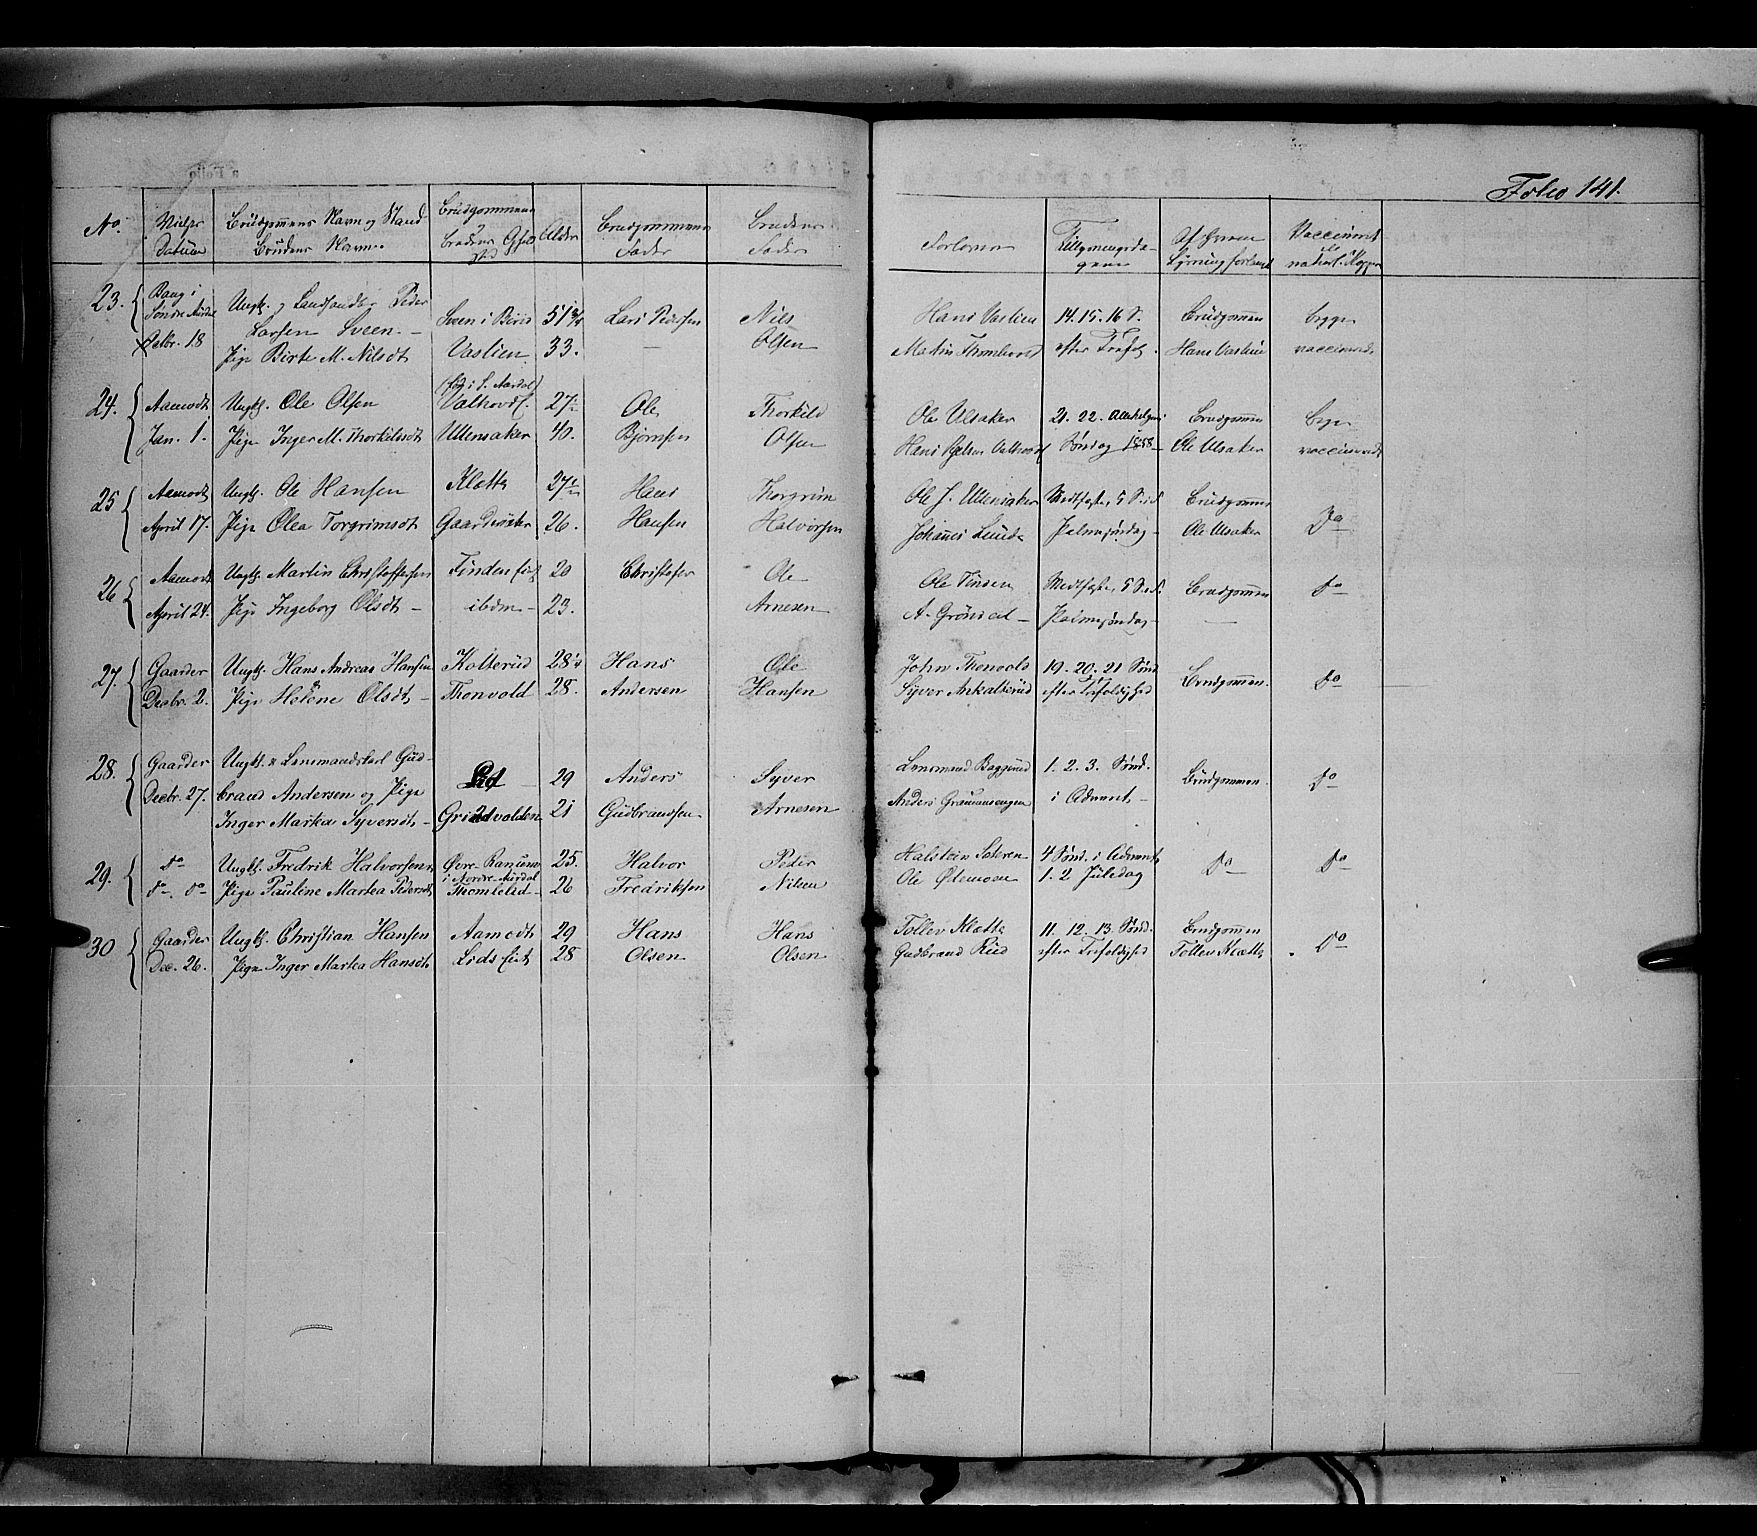 Folio 141.
No. Vielses Datum Brudgommens Navn og Stand Brudens Navn. Brudgommens Brudens Opholdssted Alder Brudgommens Fader Brudens Fader Forlovere Tillysningsdagene Af hvem Lysning forlangt Vaccineret naturl. Kopper
23. Bang i Ungk. og Landhandler Peder
Søndre Aurdal Larsen Sveen. – Sveen i Birid 51 3/4 Lars Pedersen Nils Hans Vaslien 14. 15. 16 S. Brudgommen begge
Octbr. 18 Pige Birte M. Nilsdt Vaslien. 33. – Olsen Matin efter Trefol. Hans Vaslien vaccinerede
24. Aamodt Ungk. Ole Olsen Valhovd 27 Ole Thorkild Ole Ulsaker 21. 22. Allehelgens Brudgommen begge
Jan. 1. Pige Inger M. Thorkildsdt Ullensaker 40. Bjørnsen Olsen Hans Valhovd Søndag 1858 Ole Ulsaker vaccinerede
25 Aamodt Ungk. Ole Hansen Klætte 27 Hans Thorgrim Ole J. Ullensaker Midfaste, 5 S. i F. Brudgommen
April 17. Pige Olea Torgrimsdt Gaardløkker 26. Hansen Halvorsen Johannes Lunde Palmesøndag – Ole Ulsaker Do
26 Aamodt Ungk. Martin Christoffersen Finden 20 Christofer Ole Ole Finden Midfaste, 5 S. i F. Brudgommen Do
April 24. Pige Ingeborg Olsdt – ibdm – 23. Arnesen A. Grønsed – Palmesøndag –
27. Gaarder Ungk. Hans Andreas Hansen Kolterud 28 1/4 Hans Ole John Thonvold 19. 20. 21 Sønd. Brudgommen. Do
Decbr. 2. Pige Helene Olsdt – Thonvold 28. Andersen Hansen Syver Ankolterud efter Trefoldighed
28. Gaarder Ungk. & Lensmandskarl Gud-
Decbr. 27. brand Andersen og Pige Lid – 29 Anders Syver Lensmand Baggerud 1. 2. 3. Sønd. Brudgommen Do
Inger Marka Syversdt – Grimdvolden 21 Gudbrandsen Arnesen Anders i Advent –
29. Do Ungk. Fredrik Halvorsen Øvre Ranum i Nordre Aurdal 25. Halvor Peder Halstein Sæteren 4 Sønd. i Advent Do Do
Do. Do Pige Pauline Martea Pedersdt Thomlelid – 26 Fredriksen Nilsen Ole Østmoen 1. 2 Juledag
30 Gaarder Ungk. Christian Hansen Aamodt 29 Hans Hans Tollev Klætte 11. 12. 13. Sønd. Brudgommen Do
Dec. 26. Pige Inger Martea Hansdt Lids Eiet 28 Olsen Olsen Gudbrand Rud efter Trefoldighed Tollev Klætte